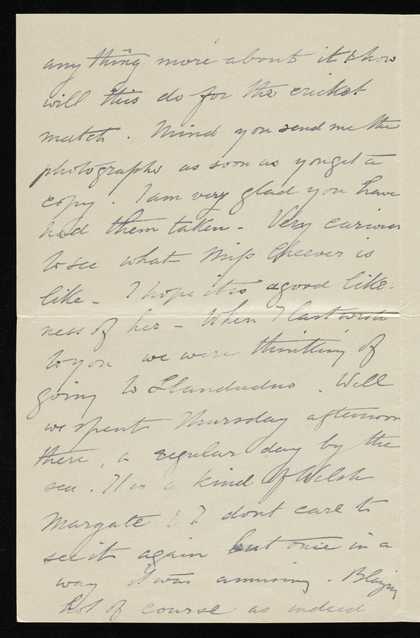 any thing more about it & how
will this do for the cricket
match. Mind you send me the
photographs as soon as you get a
copy. I am very glad you have
had them taken - Very curious
to see what Miss Cheever is
like - I hope it is a good like-
ness of her - When I last wrote
to you we were thinking of
going to Llandudno. Well
we spent Thursday afternoon
there, a regular day by the
sea. It is a kind of Welsh
Margate & I dont care to
see it again but once in a
way it was amusing. Blazing
hot of course as indeed